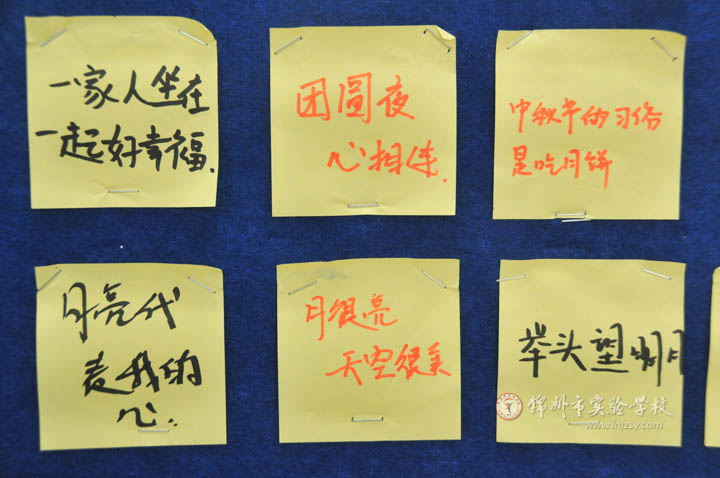 一家人坐在
一起好幸福.
团圆夜
心相连.
中秋节的习俗
是吃月饼
月亮代
表我的
心.
月很亮
天空很美
举头望明月
锦州市实验学校
www.lnjzsy.com